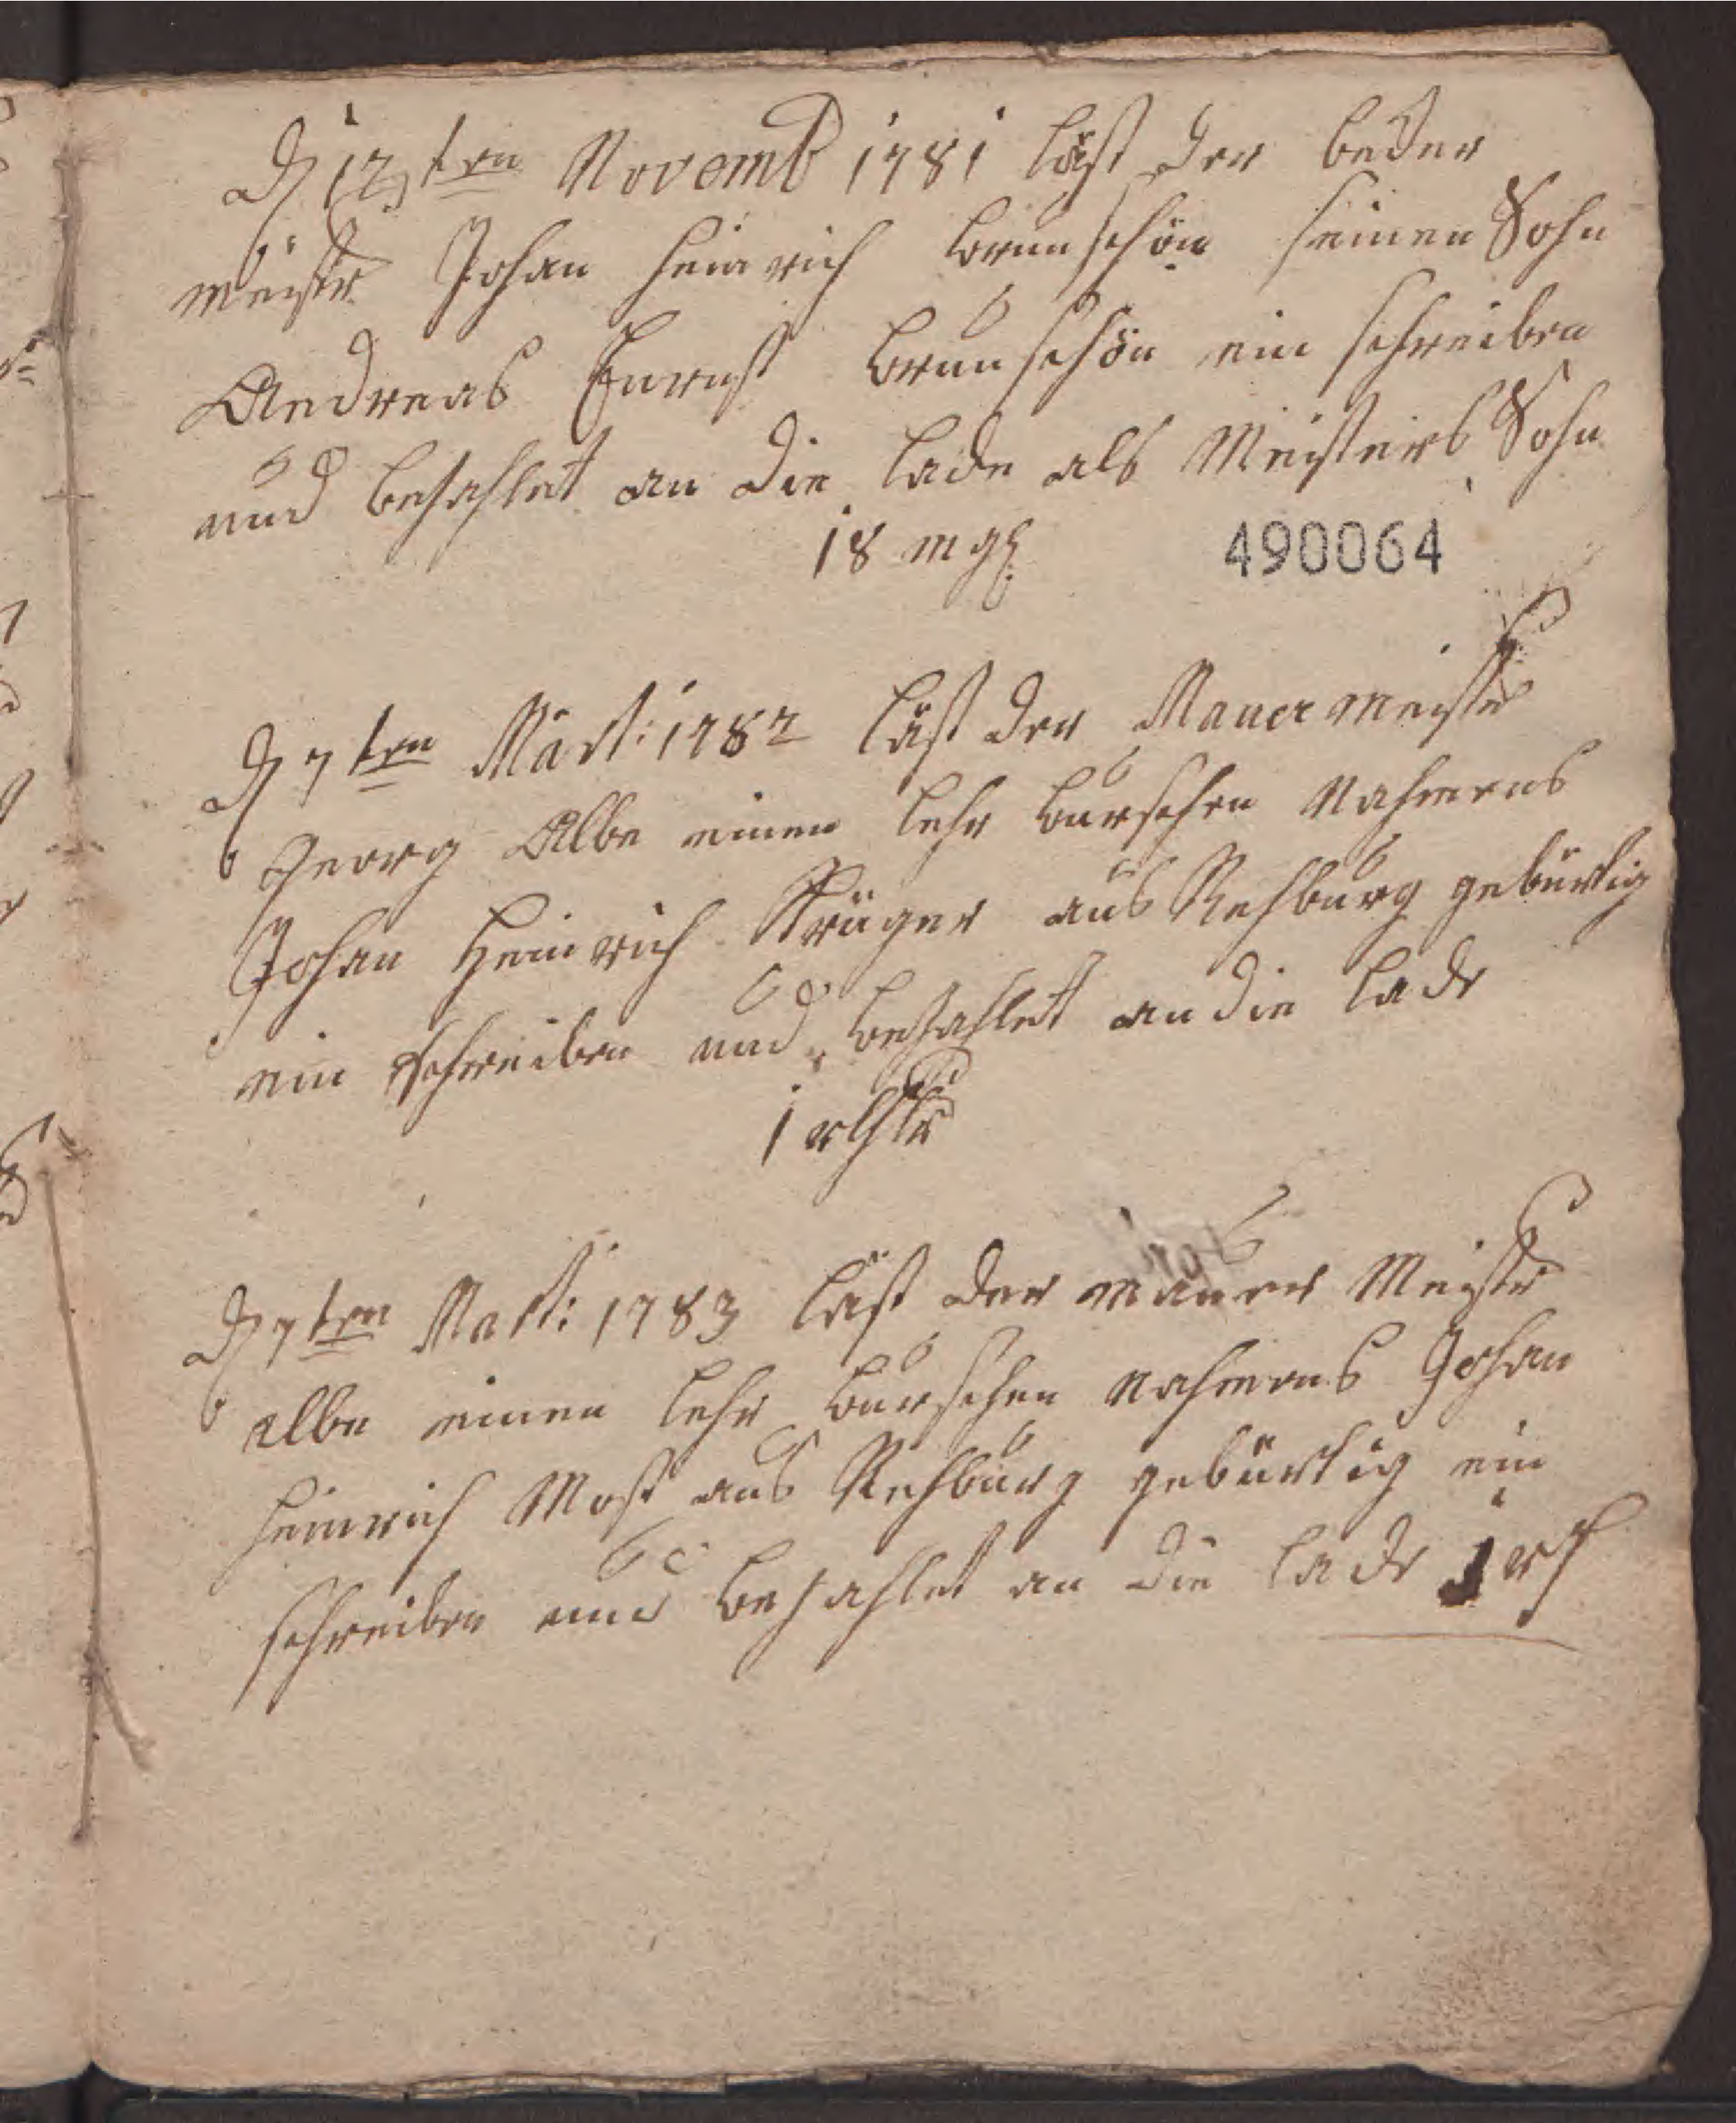 D 12ten Novemb 1781 läst der beder
meistr Johan Heinrich brunschön seinen Sohn
Andreas Ernst brunschön ein schreiben
und bezahlet an die lade als Meisters Sohn
18 mg
490064
D 7ten Mart: 1782 läst der Mauer meistr
Georg Albe einen lehr burschen Nahmens
Johan Heinrich Krüger aus Rehburg gebürtig
ein schreiben und bezahlet an die lade
1 rthlr
D 7ten Mart: 1783 läst der Maurer Meistr
Albe einen lehr burschen Nahmens Johan
Heinrich Most aus Rehburg gebürtig ein
schreiben und bezahlet an die lade 1 rt